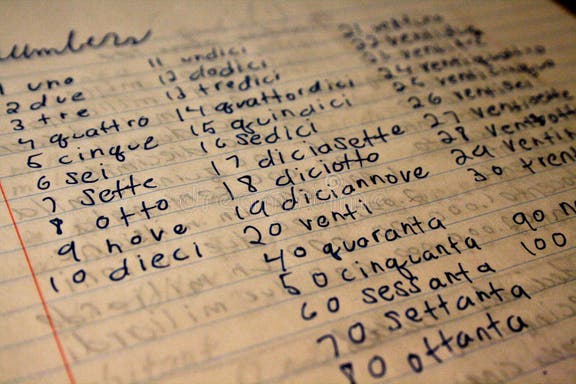 numbers
1 uno
2 due
3 tre
4 quattro
5 cinque
6 sei
7 sette
8 otto
9 nove
10 dieci
11 undici
12 dodici
13 tredici
14 quattordici
15 quindici
16 sedici
17 diciasette
18 diciotto
19 diciannove
20 venti
21
22
23
24
25
26 ventisei
27 ventisette
28
29 ventin
30 trent
40 quaranta
50 cinquanta
60 sessanta
70 settanta
80 ottanta
90 n
100